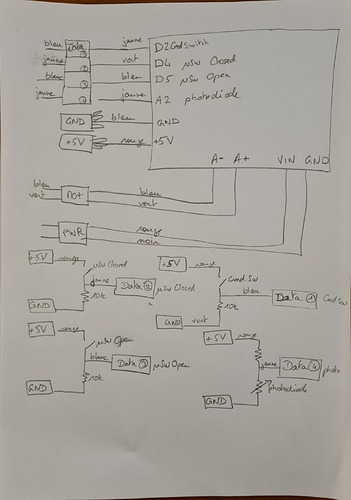 bleu Data jaune D2 Cmd switch
jaune 2 vert D4 µSw Closed
blanc 3 bleu D5 µSw Open
jaune jaune A2 photodiode
GND bleu GND
+5V rouge +5V
A- A+ VIN GND
bleu
vert MOT bleu
vert
PWR rouge
noir
+5V rouge
µSw Closed
jaune Data 2 µSw Closed
10k
GND
+5V rouge
Cmd Sw
bleu Data 1 Cmd Sw
10k
GND vert
+5V rouge
µSw Open
blanc Data 3 µSw Open
10k
GND
+5V rouge
jaune Data 4 photo
photodiode
GND